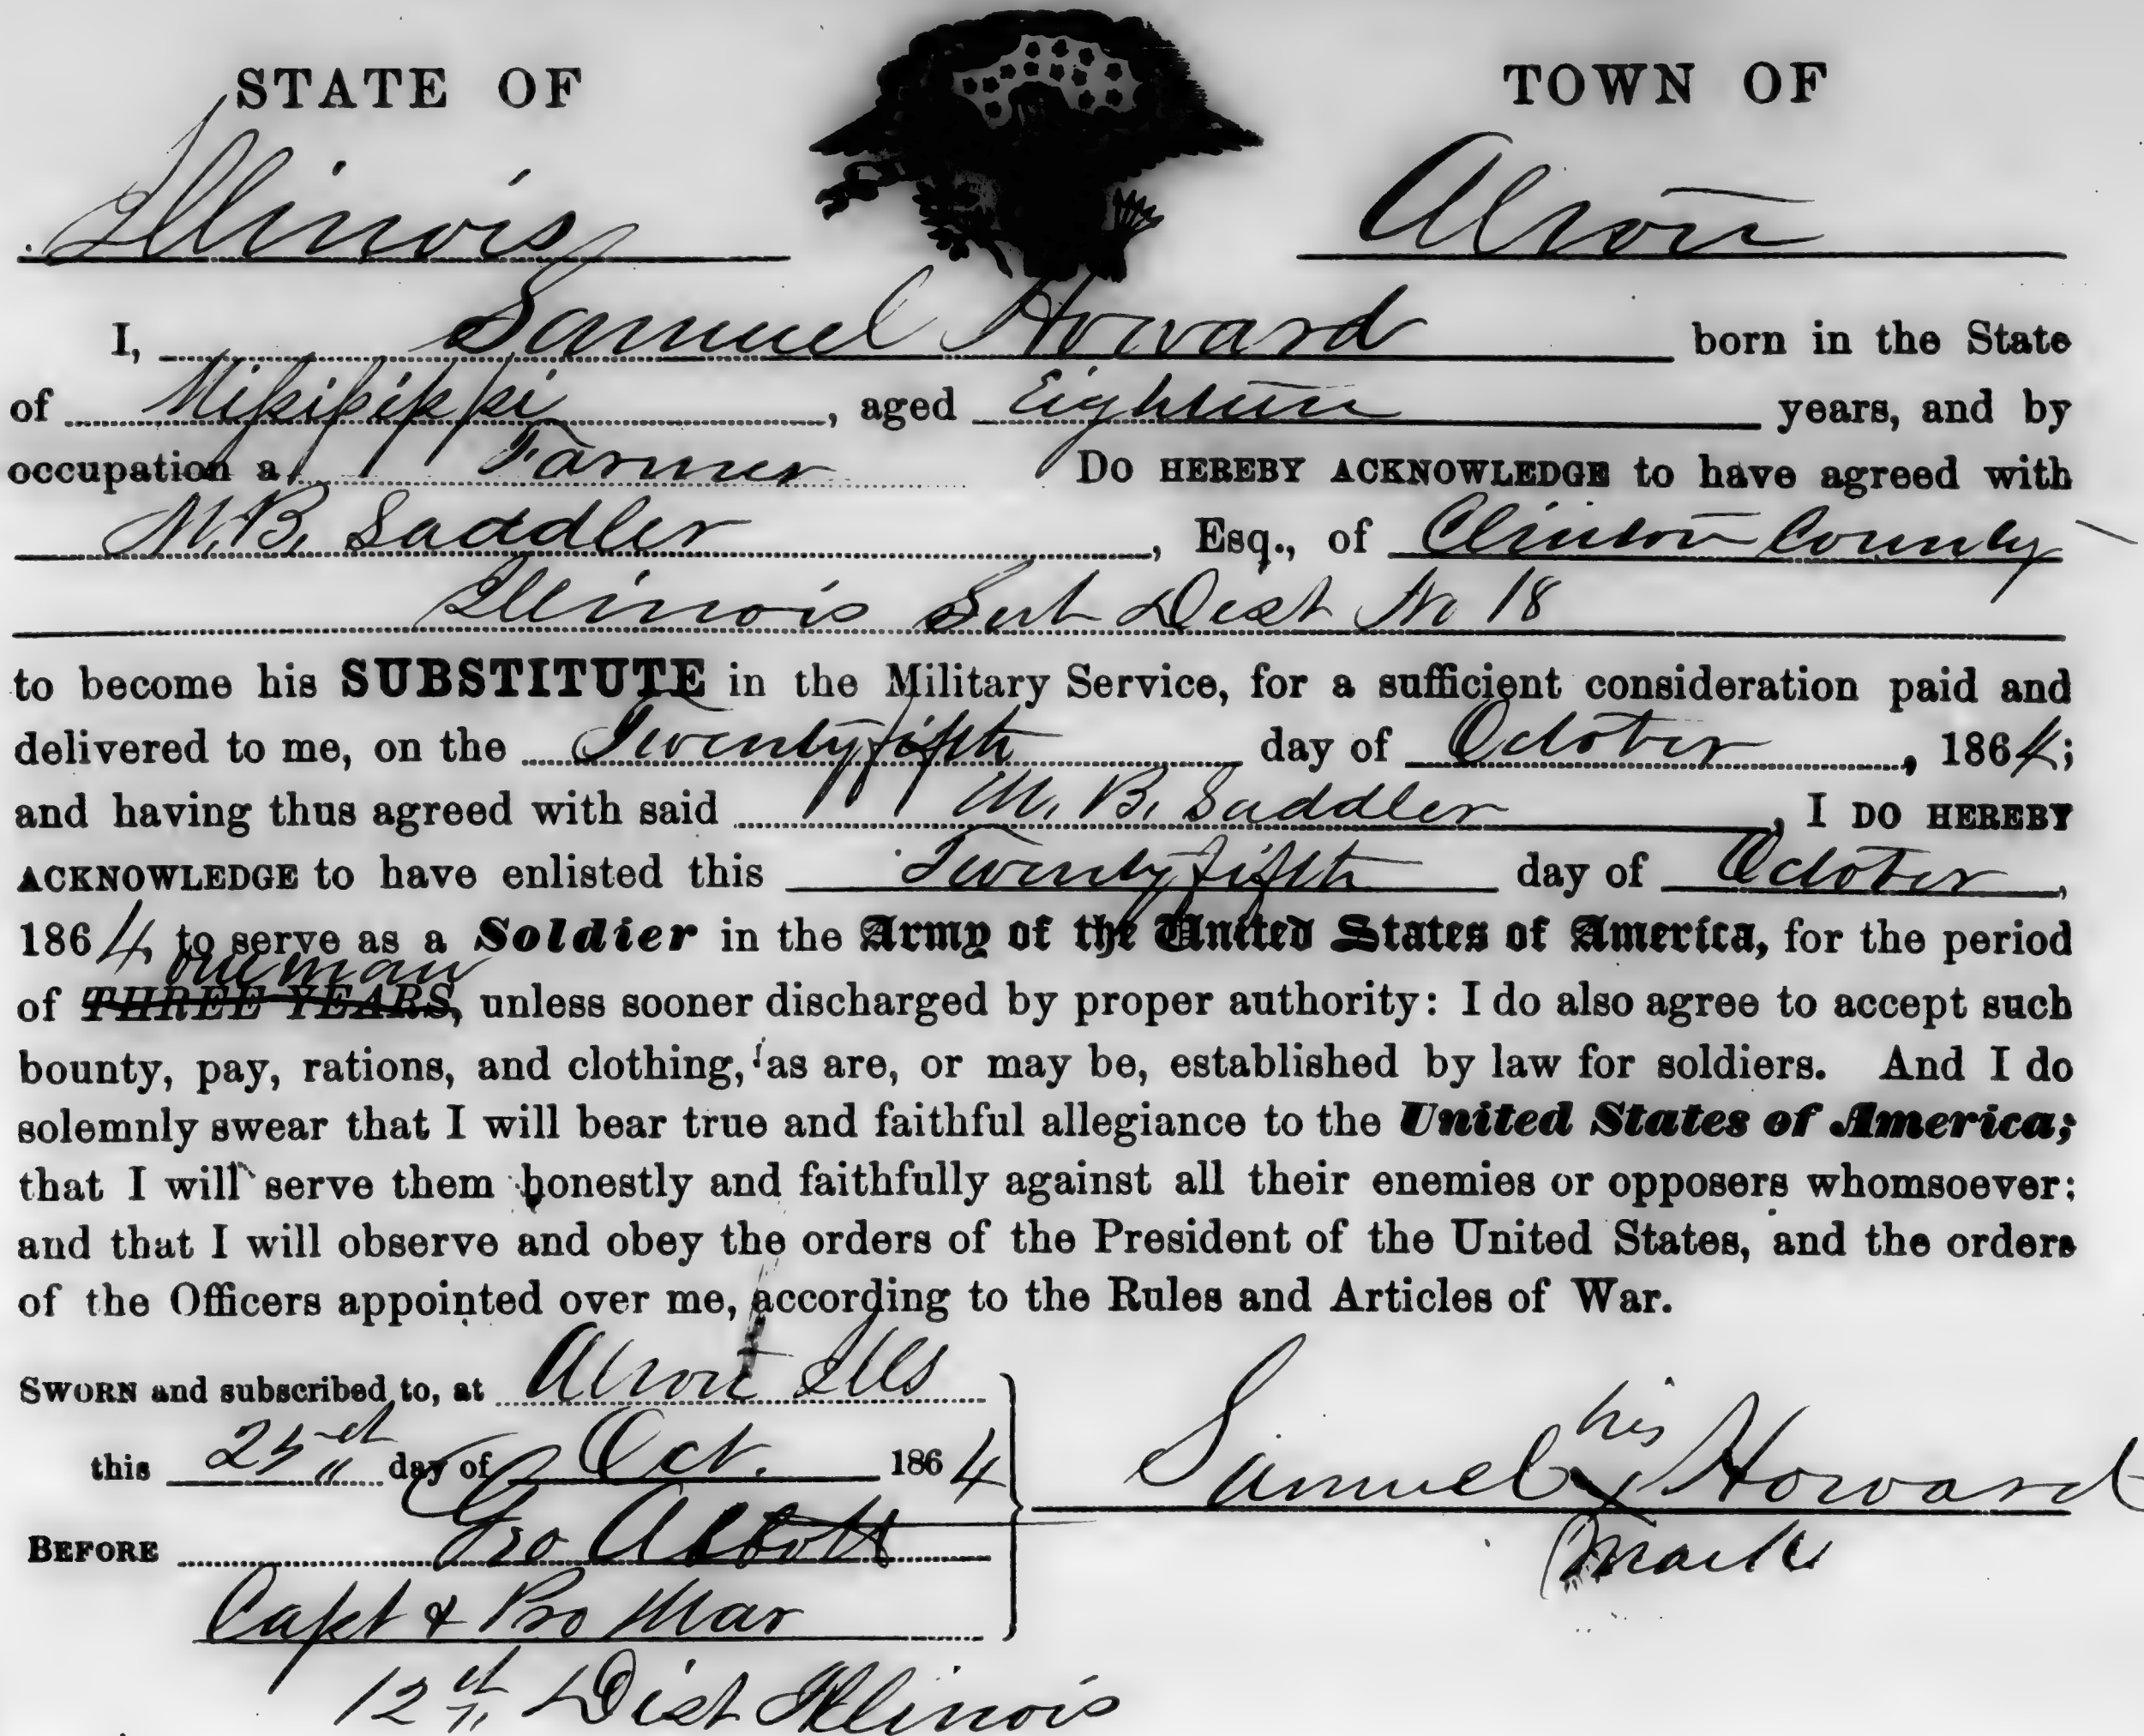 STATE OF
TOWN OF
Illinois
Alton
I, Samuel Howard born in the State
of Mississippi, aged Eighteen years, and by
occupation a Farmer DO HEREBY ACKNOWLEDGE to have agreed with
M. B. Saddler, Esq., of Clinton County
Illinois Sub Dist No 18
to become his SUBSTITUTE in the Military Service, for a sufficient consideration paid and
delivered to me, on the Twenty fifth day of October, 1864;
and having thus agreed with said M. B. Saddler, I DO HEREBY
ACKNOWLEDGE to have enlisted this Twenty fifth day of October,
1864 to serve as a Soldier in the Army of the United States of America, for the period
one
of THREE YEARS, unless sooner discharged by proper authority: I do also agree to accept such
bounty, pay, rations, and clothing, as are, or may be, established by law for soldiers. And I do
solemnly swear that I will bear true and faithful allegiance to the United States of America;
that I will serve them honestly and faithfully against all their enemies or opposers whomsoever:
and that I will observe and obey the orders of the President of the United States, and the orders
of the Officers appointed over me, according to the Rules and Articles of War.
SWORN and subscribed to, at Alton Ills
this 25th day of Oct. 1864
BEFORE Geo Abbott
Capt & Pro Mar
12th Dist Illinois
his
Samuel x Howard
mark